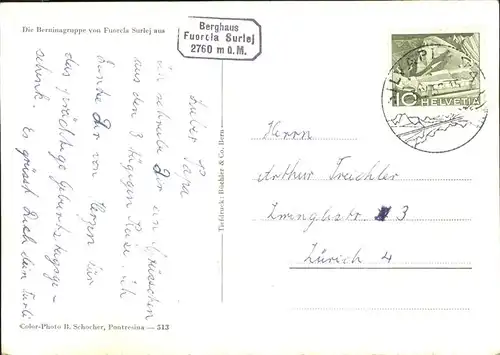 Die Berninagruppe von Fuorcla Surlej aus
Berghaus
Fuorcla Surlej
2760 m ü. M.
10 HELVETIA
Lieber Papa
ich schreibe Dir ein Grüsschen
aus den 3 tägigen Reise. Ich
danke Dir von Herzen für
das prächtige Geburtstagsge-
schenk. Es grüsst Dich dein
Tiefdruck: Büchler & Co. Bern
Herrn
Arthur Treichler
Zwinglistr. 3
Zürich 4
Color-Photo B. Schocher, Pontresina — 513